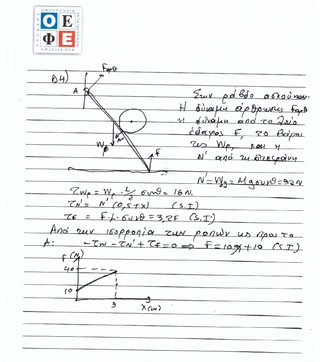 Ο Ε
Φ Ε
Β4)
Fαρθ
Α
Στην ράβδο ασκούνται
Η δύναμη άρθρωσης Fαρθ
η δύναμη από το λείο
έδαφος F, το βάρος
της Wρ, και η
Ν' από τη στεφάνη
Wρ
F
N'=Wy=Mgσυνθ=32N
τWρ=Wρ·L/2 συνθ=16N
τN'=N'(0,5+x) (S.I.)
τF=F·L·συνθ=3,2F (S.I.)
Από την ισορροπία των ροπών ως προς το
Α: -τW-τN'+τF=0⇒F=10x+10 (S.I.)
F(N)
40
10
3
x(m)